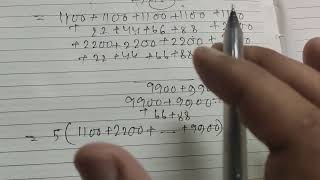 = 1100+1100+1100+1100+1100
+ 22+44+66+88
+2200+2200+2200
+ 22+44+66+88
9900+99
9900+9900
+66+88
= 5(1100+2200+ ... +9900)